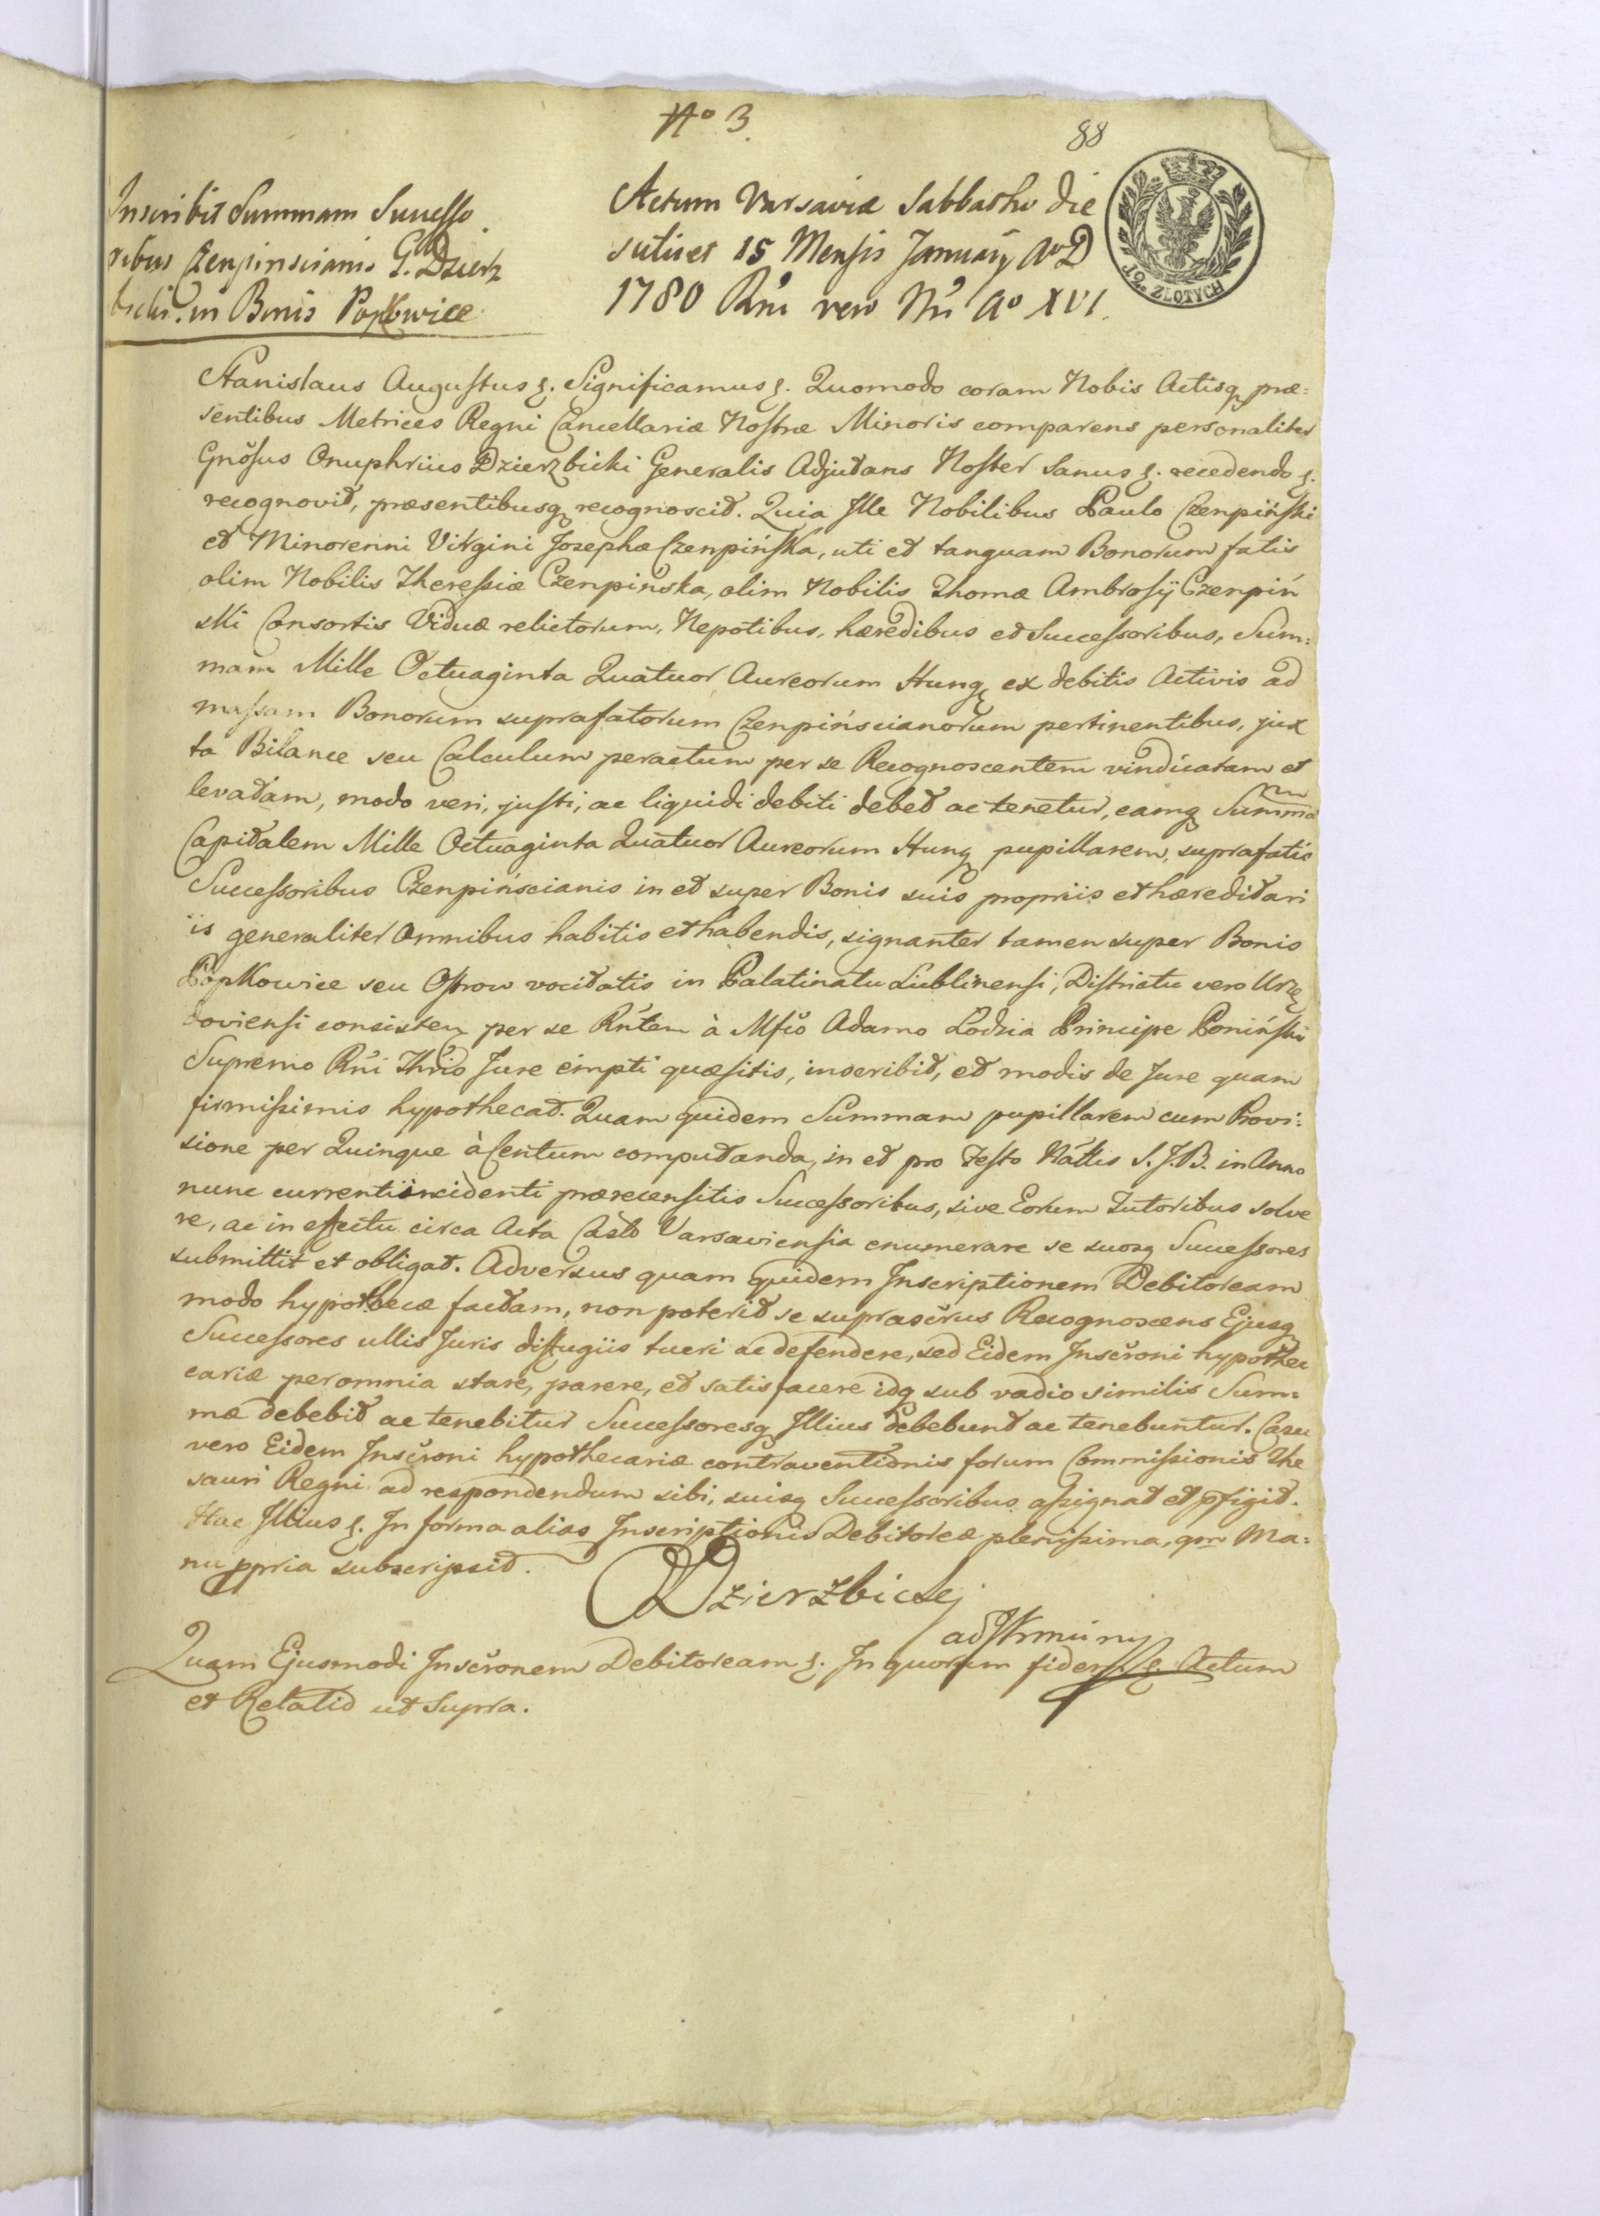 No 3.
88
Inscribit Summam Successo
ribus Czenpinscianis G. Dzierz
bicki in Bonis Popkowice
Actum Varsaviæ Sabbatho die
scilicet 15 Mensis Januarij Ao D
1780 Rni vero Nri Ao XVI.
12. ZLOTYCH
Stanislaus Augustus &. Significamus &. Quomodo coram Nobis Actisq præ=
sentibus Metrices Regni Cancellariæ Nostræ Minoris comparens personaliter
Gnosus Onuphrius Dzierzbicki Generalis Adjutans Noster Sanus &. recedendo &.
recognovit, præsentibusq recognoscit. Quia Ille Nobilibus Paulo Czenpiński
et Minorenni Virgini Josephæ Czenpińska, uti et tanquam Bonorum fatis
olim Nobilis Theressiæ Czenpińska, olim Nobilis Thomæ Ambrosij Czenpiń
ski Consortis Viduæ relictorum, Nepotibus, hæredibus et Successoribus, Sum=
mam Mille Octuaginta Quatuor Aureorum Hung ex debitis Activis ad
massam Bonorum suprafatorum Czenpińscianorum pertinentibus, jux
ta Bilance seu Calculum peractum per se Recognoscentem vindicatam et
levatam, modo veri, justi, ac liquidi debiti debet ac tenetur, eamq Summa
Capitalem Mille Octuaginta Quatuor Aureorum Hung pupillarem, suprafatis
Successoribus Czenpińscianis in et super Bonis suis propriis et hæreditari
is generaliter omnibus habitis et habendis, signanter tamen super Bonis
Popkowice seu Ostrow vocitatis in Palatinatu Lublinensi, Districtu vero Urzę
doviensi consisten per se Rntem à Mfco Adamo Lodzia Principe Poniński
Supremo Rni Thrio Jure empti quæsitis, inscribit, et modis de Jure quam
firmissimis hypothecat. Quam quidem Summam pupillarem cum Provi=
sione per Quinque à Centum computanda, in et pro Festo Nattis S. J. B. in Anno
nunc currenti incidenti præcensitis Successoribus, sive Eorum Tutoribus solve
re, ac in effectu circa Acta Castr Varsaviensia enumerare se suosq Successores
submittit et obligat. Adversus quam quidem Inscriptionem Debitoream
modo hypothecæ factam, non poterit se suprascrus Recognoscens Ejusq
Successores ullis Juris diffugiis tueri ac defendere, sed Eidem Inscroni hypothe
cariæ per omnia stare, parere, et satisfacere idq sub vadio similis Sum=
mæ debebit ac tenebitur Successoresq Illius debebunt ac tenebuntur. Casu
vero Eidem Inscroni hypothecariæ contraventionis forum Commissionis The
sauri Regni ad respondendum sibi, suisq Successoribus assignat et pfigit.
Hac Illius &. In forma alias Inscriptionis Debitoreæ plenissima, qm Ma=
nu ppria subscripsit.
Dzierzbicki
Quam Ejusmodi Inscronem Debitoream &. In quorum fidem &. Actum
et Relatio ut Supra.